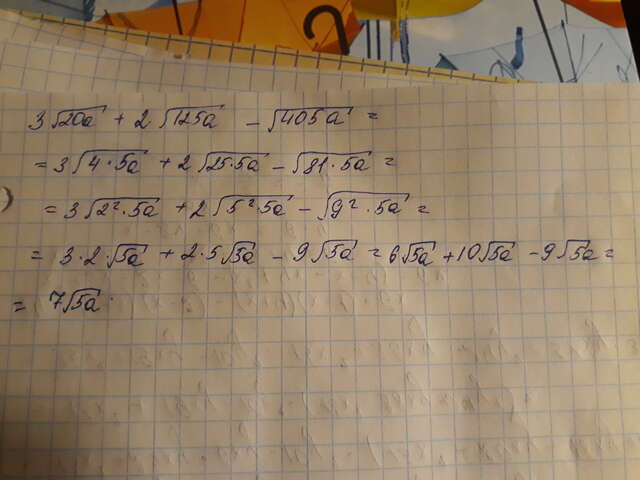 3√20a + 2√125a - √405a =
= 3√4·5a + 2√25·5a - √81·5a =
= 3√2²·5a + 2√5²·5a - √9²·5a =
= 3·2·√5a + 2·5√5a - 9√5a = 6√5a + 10√5a - 9√5a =
= 7√5a